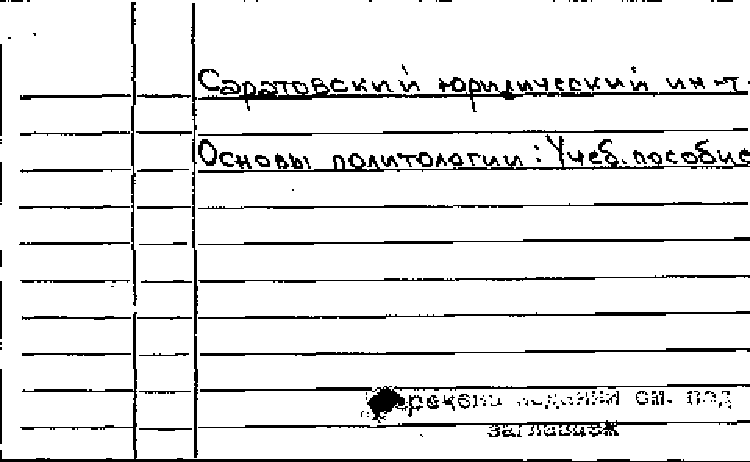 Саратовский юридический ин-т
Основы политологии: Учеб. пособие
см. под
заглавием